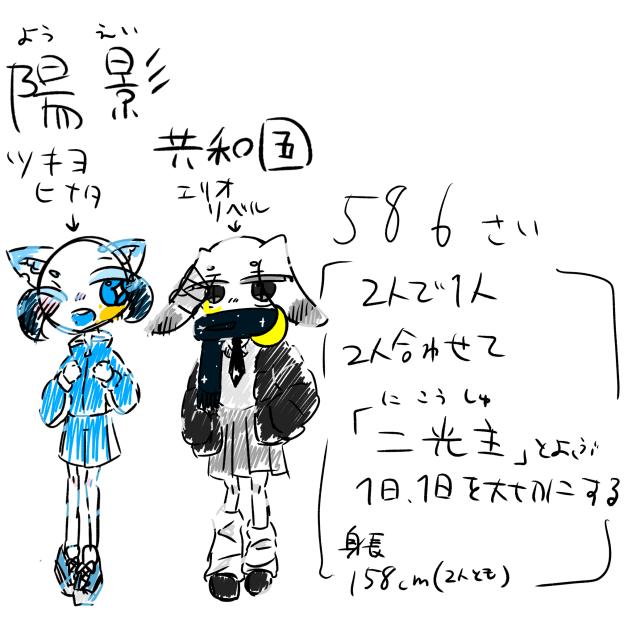 よう えい
陽影
共和国
ツキヨ
ヒナタ
エリオ
リベル
586さい
2人で1人
2人合わせて
にこうしゅ
「二光主」とよぶ
1日、1日を大切にする
身長
158cm(2人とも)